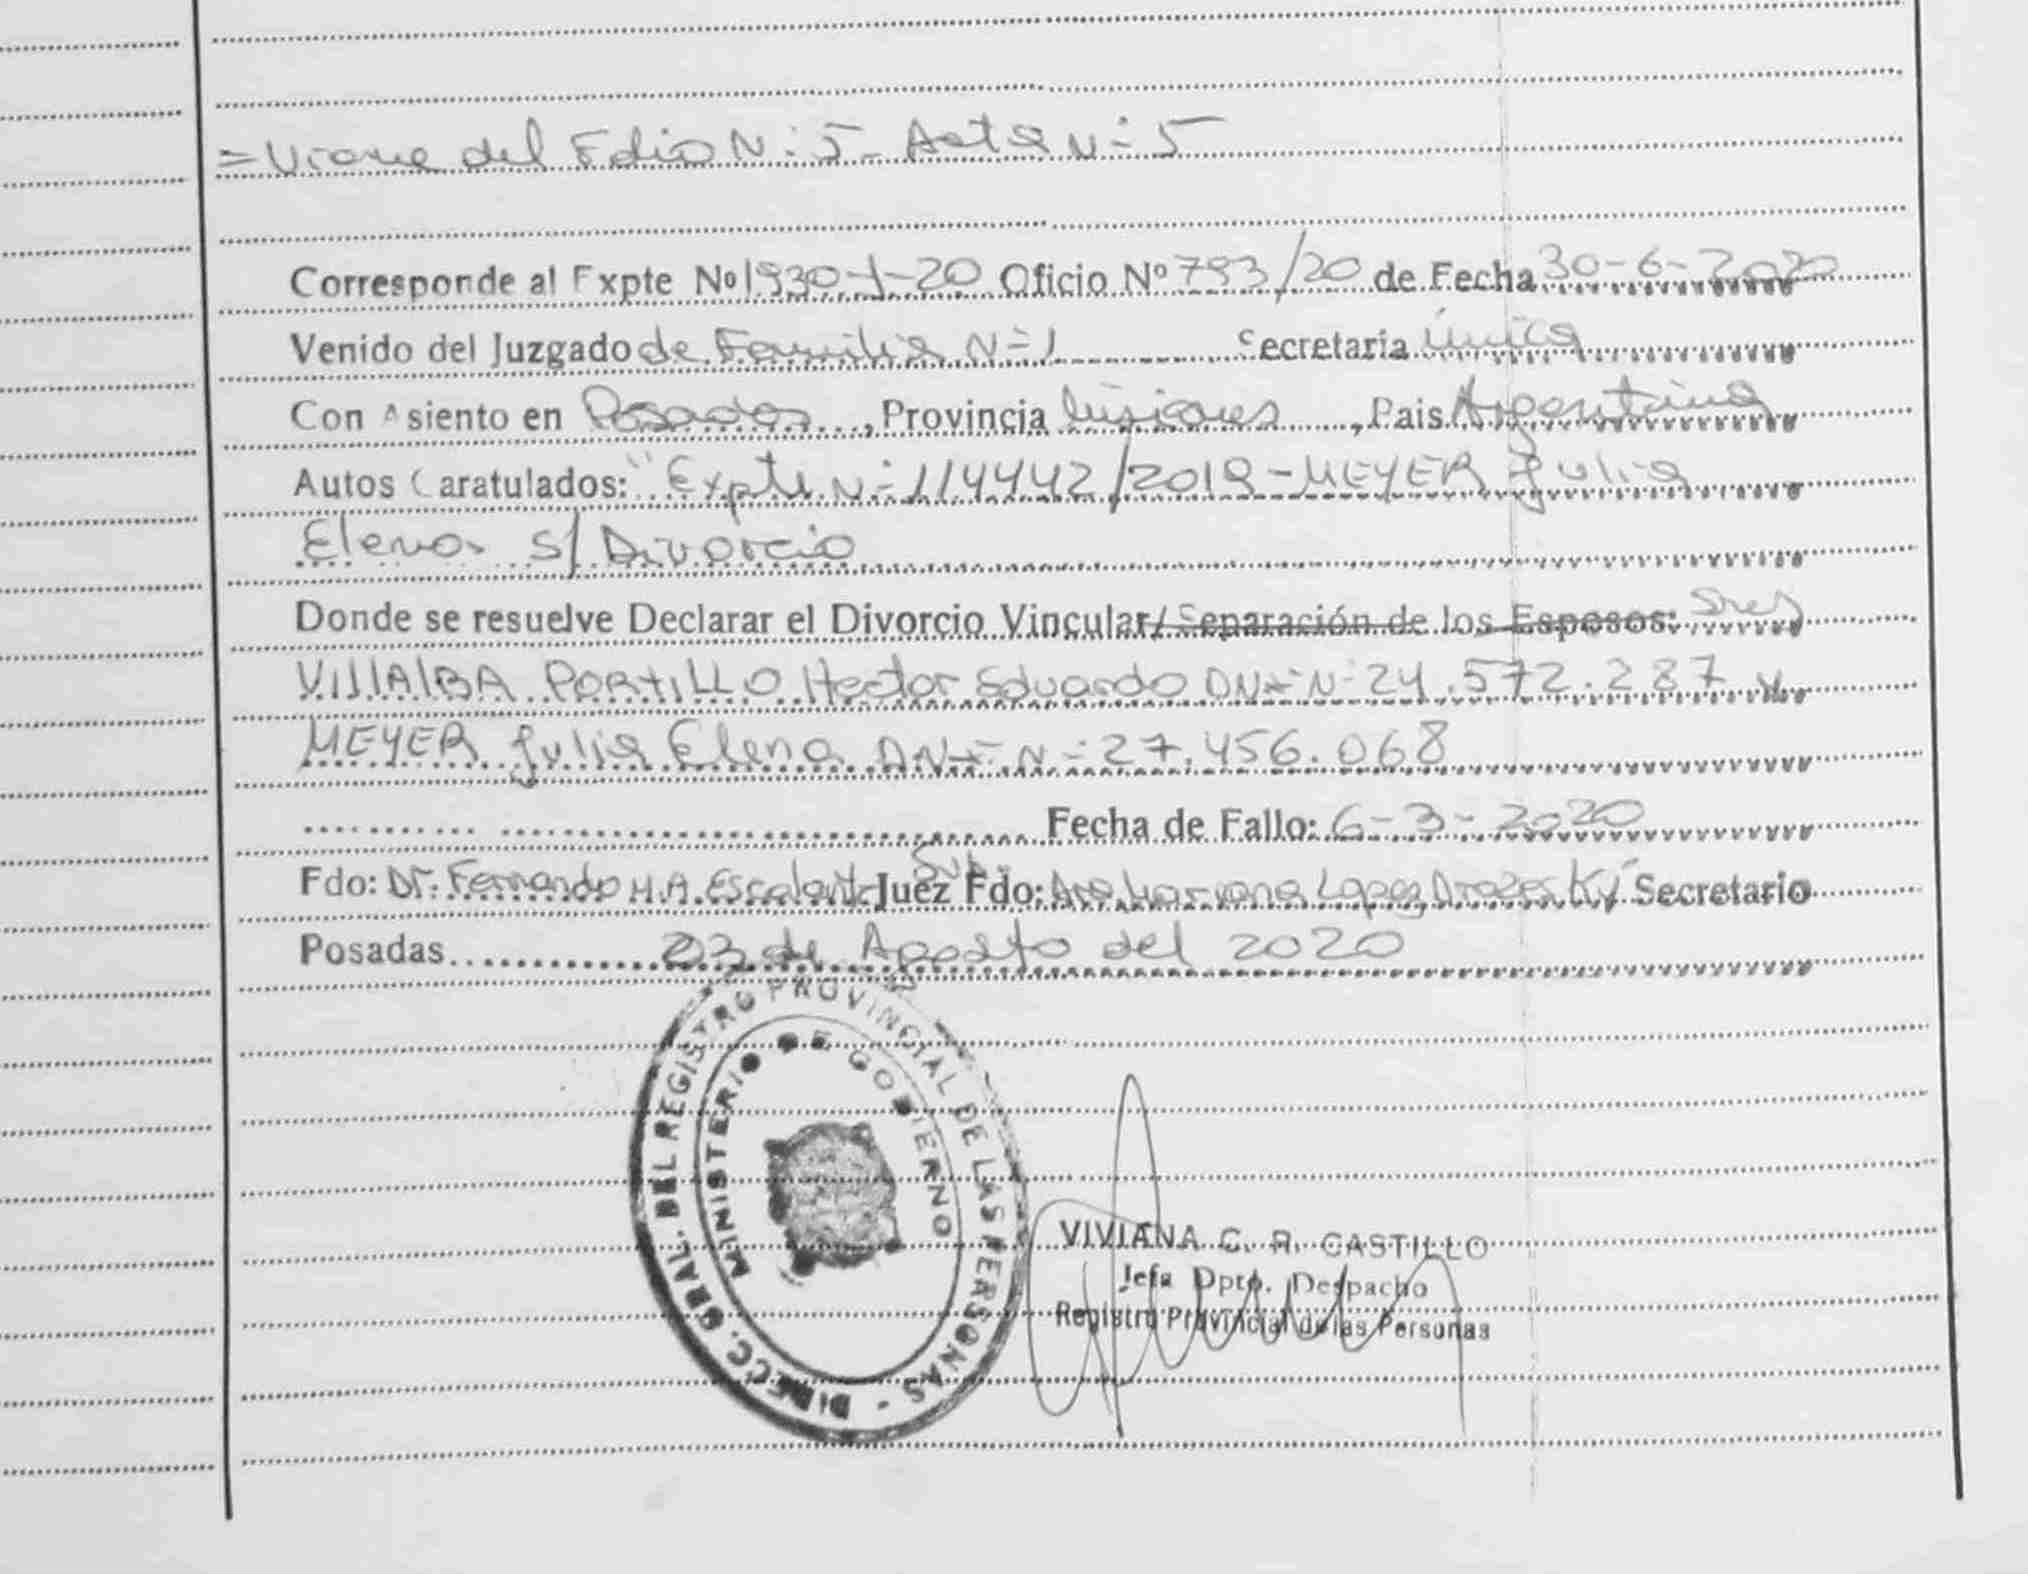 = Viene del Folio N: 5 - Acta N: 5
Corresponde al Expte Nº 1930-J-20 Oficio Nº 793/20 de Fecha 30-6-2020
Venido del Juzgado de Familia N:1 Secretaria Única
Con Asiento en Posadas, Provincia Misiones, Pais Argentina
Autos Caratulados: "Expte N: 114442/2019 - MEYER Julia
Elena s/ Divorcio
Donde se resuelve Declarar el Divorcio Vincular/ Separación de los Esposos: Sres
VILLALBA PORTILLO Hector Eduardo DNI N: 24.572.287 y
MEYER Julia Elena DNI N: 27.456.068
Fecha de Fallo: 6-3-2020
Fdo: Dr. Fernando M.A. Escalante Juez Fdo: Dra Mariana Lopez Secretario
Posadas 03 de Agosto del 2020
DIRECC. GRAL. DEL REGISTRO PROVINCIAL DE LAS PERSONAS -
MINISTERIO DE GOBIERNO
VIVIANA C. R. CASTILLO
Jefa Dpto. Despacho
Registro Provincial de las Personas